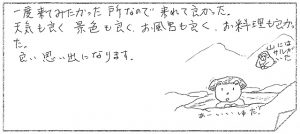 一度来てみたかった所なので来れて良かった。
天気も良く景色も良く、お風呂も良く、お料理も良かった。
良い思い出になります。
山には
サルが
いた
あーいい湯だ♪